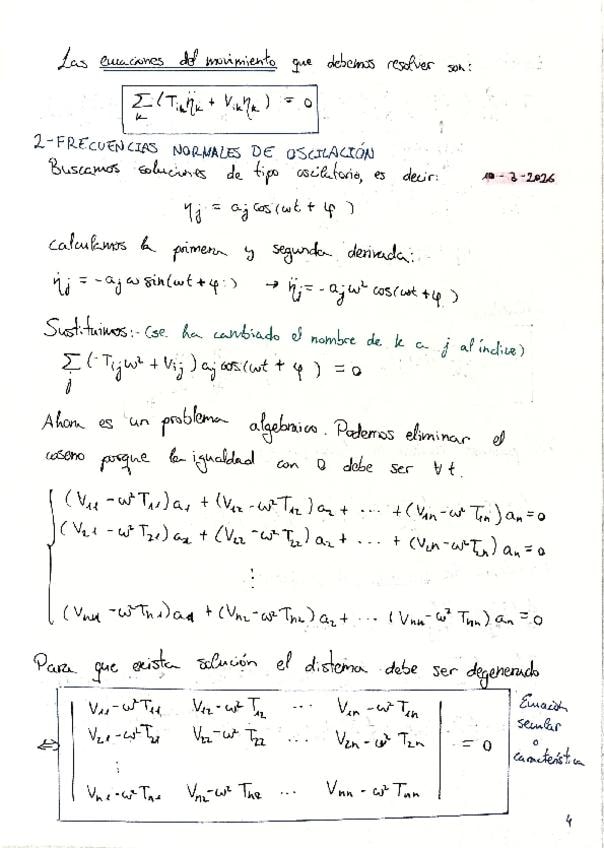 Las ecuaciones del movimiento que debemos resolver son:
∑ₖ (Tᵢₖη̈ₖ + Vᵢₖηₖ) = 0
2-FRECUENCIAS NORMALES DE OSCILACIÓN
Buscamos soluciones de tipo oscilatorio, es decir: 10-3-2026
ηj = aj cos(ωt + φ )
Calculamos la primera y segunda derivada:
η̇j = -aj ω sin(ωt + φ ) → η̈j = -aj ω² cos(ωt + φ )
Sustituimos: (se ha cambiado el nombre de k a j al índice)
∑j (-Tij ω² + Vij ) aj cos(ωt + φ ) = 0
Ahora es un problema algebraico. Podemos eliminar el
coseno porque la igualdad con 0 debe ser ∀t.
(V11 - ω²T11)a1 + (V12 - ω²T12)a2 + ... + (V1n - ω²T1n)an = 0
(V21 - ω²T21)a1 + (V22 - ω²T22)a2 + ... + (V2n - ω²T2n)an = 0
⋮
(Vn1 - ω²Tn1)a1 + (Vn2 - ω²Tn2)a2 + ... (Vnn - ω²Tnn)an = 0
Para que exista solución el distema debe ser degenerado
V11 - ω²T11 V12 - ω²T12 ... V1n - ω²T1n
V21 - ω²T21 V22 - ω²T22 ... V2n - ω²T2n
⋮
Vn1 - ω²Tn1 Vn2 - ω²Tn2 ... Vnn - ω²Tnn
⇔ = 0
Ecuación
secular
o
característica
4